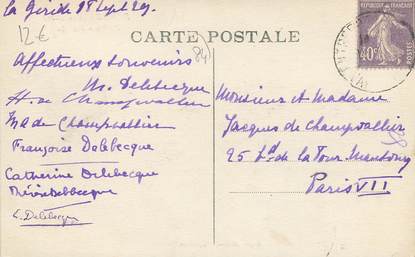 La Giride 18 Sept 29.
12€
CARTE POSTALE
(84)
RÉPUBLIQUE FRANÇAISE
40c
POSTES
Affectueux souvenirs
M. Delebecque
H. de Champvallier
M de Champvallier
Françoise Delebecque
Catherine Delebecque
Delebecque
L. Delebecque
Monsieur et Madame
Jacques de Champvallier
25 Bd de la Tour Maubourg
Paris VII